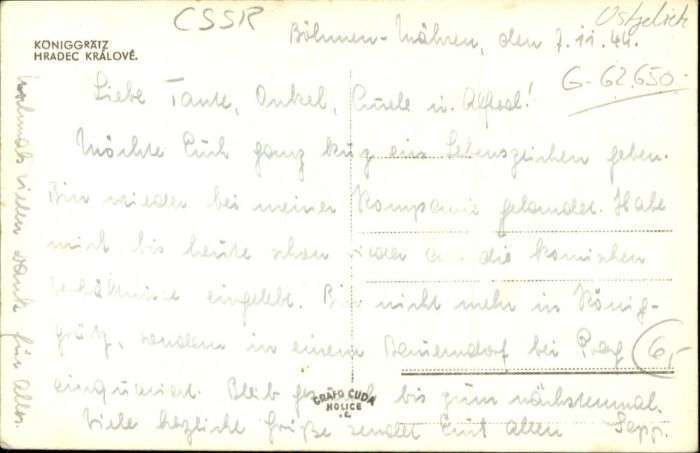 CSSR
KÖNIGGRÄTZ
HRADEC KRÁLOVÉ.
Böhmen-Mähren, den 7.11.44.
G-62.650.-
Liebe Tante, Onkel, u. Alfred!
Möchte Euch ganz kurz ein Lebenszeichen geben.
Bin wieder bei meiner Kompanie gelandet. Habe
mich bis heute schon wieder an die komischen
Verhältnisse eingelebt. Bin nicht mehr in König-
grätz, sondern in einem Bauerndorf bei Prag
6,-
einquartiert. Bleib gesund bis zum nächstenmal.
Viele herzliche Grüße sendet Euch allen Sepp.
GRAFO ČUDA
HOLICE
nochmals vielen Dank für Alles.